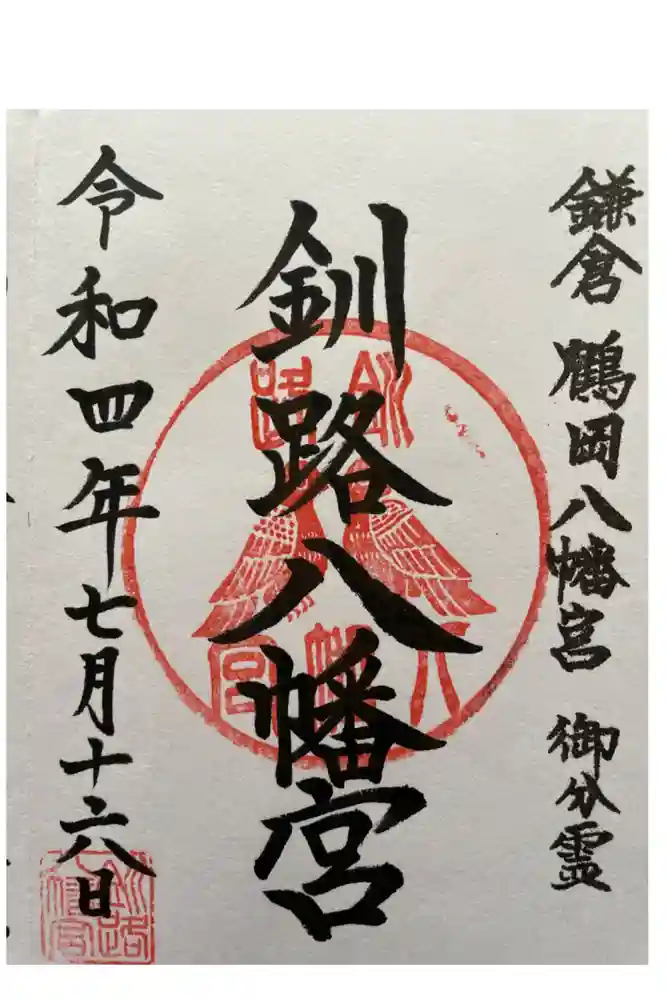 鎌倉 鶴岡八幡宮 御分霊
釧路八幡宮
令和四年七月十六日
釧路
八幡宮